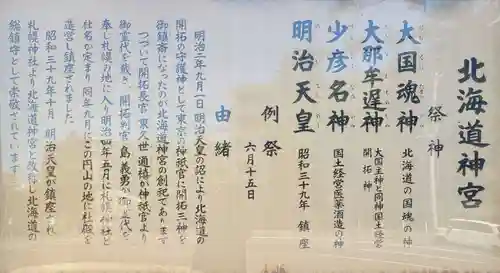 北海道神宮
祭神
大国魂神 北海道の国魂の神
大那牟遅神 大国主神と同神国土経営
開拓神
少彦名神 国土経営医薬酒造の神
明治天皇 昭和三十九年 鎮座
例祭 六月十五日
由緒
明治二年九月一日 明治天皇の詔により北海道の
開拓の守護神として東京の神祇官に開拓三神を
御鎮斎になったのが北海道神宮の創祀であります
つづいて開拓長官東久世通禧が神祇官より
御霊代を戴き 開拓判官島義勇が御霊代を
奉じ札幌の地に入り明治四年五月に札幌神社と
社名が定まり 同年九月にこの円山の地に社殿を
造営し鎮座されました
昭和三十九年十月 明治天皇が鎮座され
札幌神社より北海道神宮と改称し北海道の
総鎮守として崇敬されています